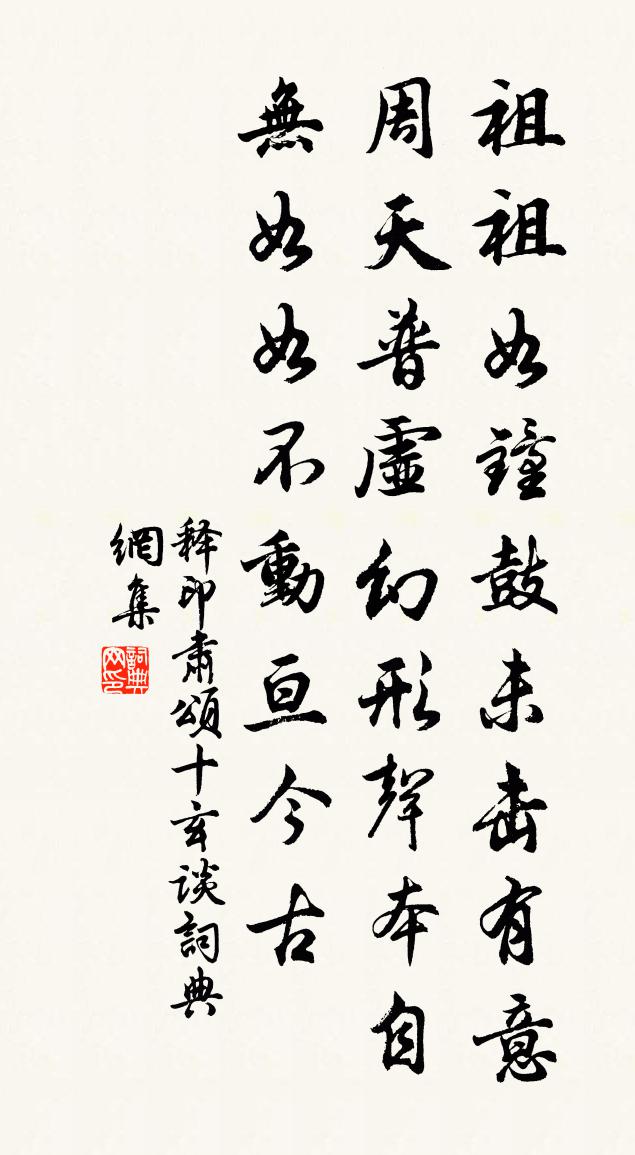 祖祖如鐘鼓未击有意
周天普虛幻形聲本自
無如如不動亘今古
释印肃頌十玄谈詞典
網集
詞典
网印